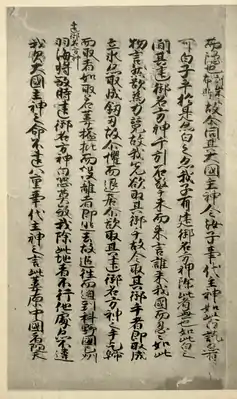 故尒問其大國主神今汝子事代主神如此白訖亦有
可白子乎於是亦白之亦我子有建御名方神除此者無也如此白之
間其建御名方神千引石擎手末而来言誰来我國而忍々如此
物言然欲為力競故我先欲取其御手故令取其御手者即取成
立氷亦取成釼刃故尒懼而退居尒欲取其建御名方神之手乞歸
而取者如取若葦搤批而投離者即逃去故追往而迫到科野國之州
建御名方神
羽海將殺時建御名方神白恐莫殺我除此地者不行他處亦不違
我父大國主神之命不違八重事代主神之言此葦原中國者随天